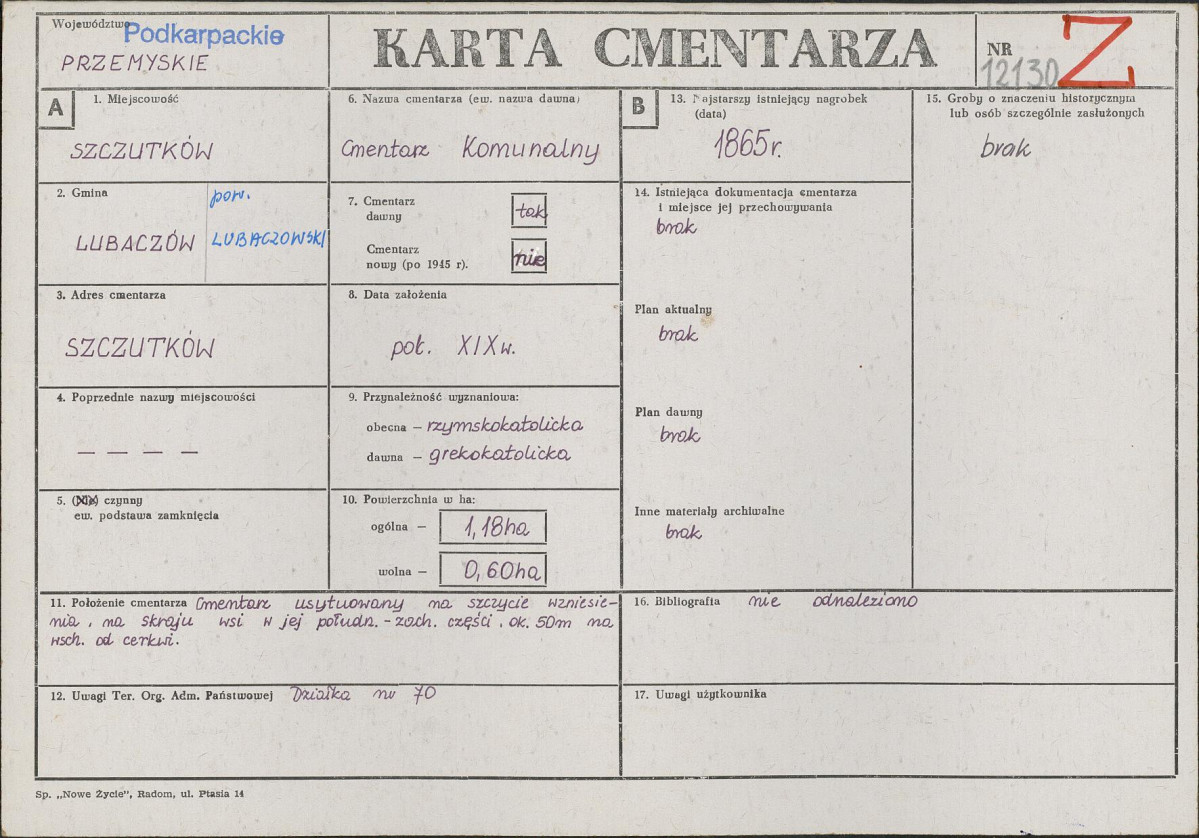 Województwo Podkarpackie
PRZEMYSKIE
KARTA CMENTARZA
NR 12130
Z
A
1. Miejscowość
SZCZUTKÓW
2. Gmina
LUBACZÓW
pow.
LUBACZOWSKI
3. Adres cmentarza
SZCZUTKÓW
4. Poprzednie nazwy miejscowości
— — — —
5. (Nie) czynny
ew. podstawa zamknięcia
6. Nazwa cmentarza (ew. nazwa dawna)
Cmentarz Komunalny
7. Cmentarz
dawny
tak
Cmentarz
nowy (po 1945 r).
nie
8. Data założenia
poł. XIXw.
9. Przynależność wyznaniowa:
obecna — rzymskokatolicka
dawna — grekokatolicka
10. Powierzchnia w ha:
ogólna — 1,18ha
wolna — 0,60ha
11. Położenie cmentarza Cmentarz usytuowany na szczycie wzniesie-
nia, na skraju wsi w jej połudn.-zach. części, ok. 50m na
wsch. od cerkwi.
12. Uwagi Ter. Org. Adm. Państwowej Działka nr 70
B
13. Najstarszy istniejący nagrobek
(data)
1865r.
14. Istniejąca dokumentacja cmentarza
i miejsce jej przechowywania
brak
Plan aktualny
brak
Plan dawny
brak
Inne materiały archiwalne
brak
15. Groby o znaczeniu historycznym
lub osób szczególnie zasłużonych
brak
16. Bibliografia nie odnaleziono
17. Uwagi użytkownika
Sp. „Nowe Życie”, Radom, ul. Ptasia 14